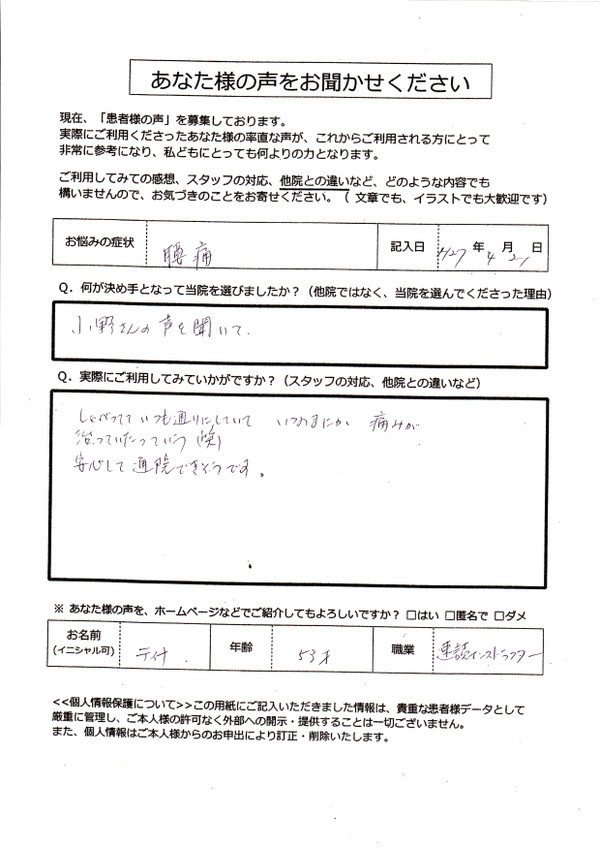 あなた様の声をお聞かせください
現在、「患者様の声」を募集しております。
実際にご利用くださったあなた様の率直な声が、これからご利用される方にとって
非常に参考になり、私どもにとっても何よりの力となります。
ご利用してみての感想、スタッフの対応、他院との違いなど、どのような内容でも
構いませんので、お気づきのことをお寄せください。（ 文章でも、イラストでも大歓迎です）
お悩みの症状 腰痛 記入日 H27 年 4 月 21 日
Q．何が決め手となって当院を選びましたか？（他院ではなく、当院を選んでくださった理由）
小野さんの声を聞いて.
Q．実際にご利用してみていかがですか？（スタッフの対応、他院との違いなど）
しゃべってていつも通りにしていて いつのまにか 痛みが
治っていたっていう(笑)
安心して通院できそうです。
※ あなた様の声を、ホームページなどでご紹介してもよろしいですか？ □はい □匿名で □ダメ
お名前 ティナ 年齢 53才 職業 速読インストラクター
(イニシャル可)
<<個人情報保護について>>この用紙にご記入いただきました情報は、貴重な患者様データとして
厳重に管理し、ご本人様の許可なく外部への開示・提供することは一切ございません。
また、個人情報はご本人様からのお申出により訂正・削除いたします。